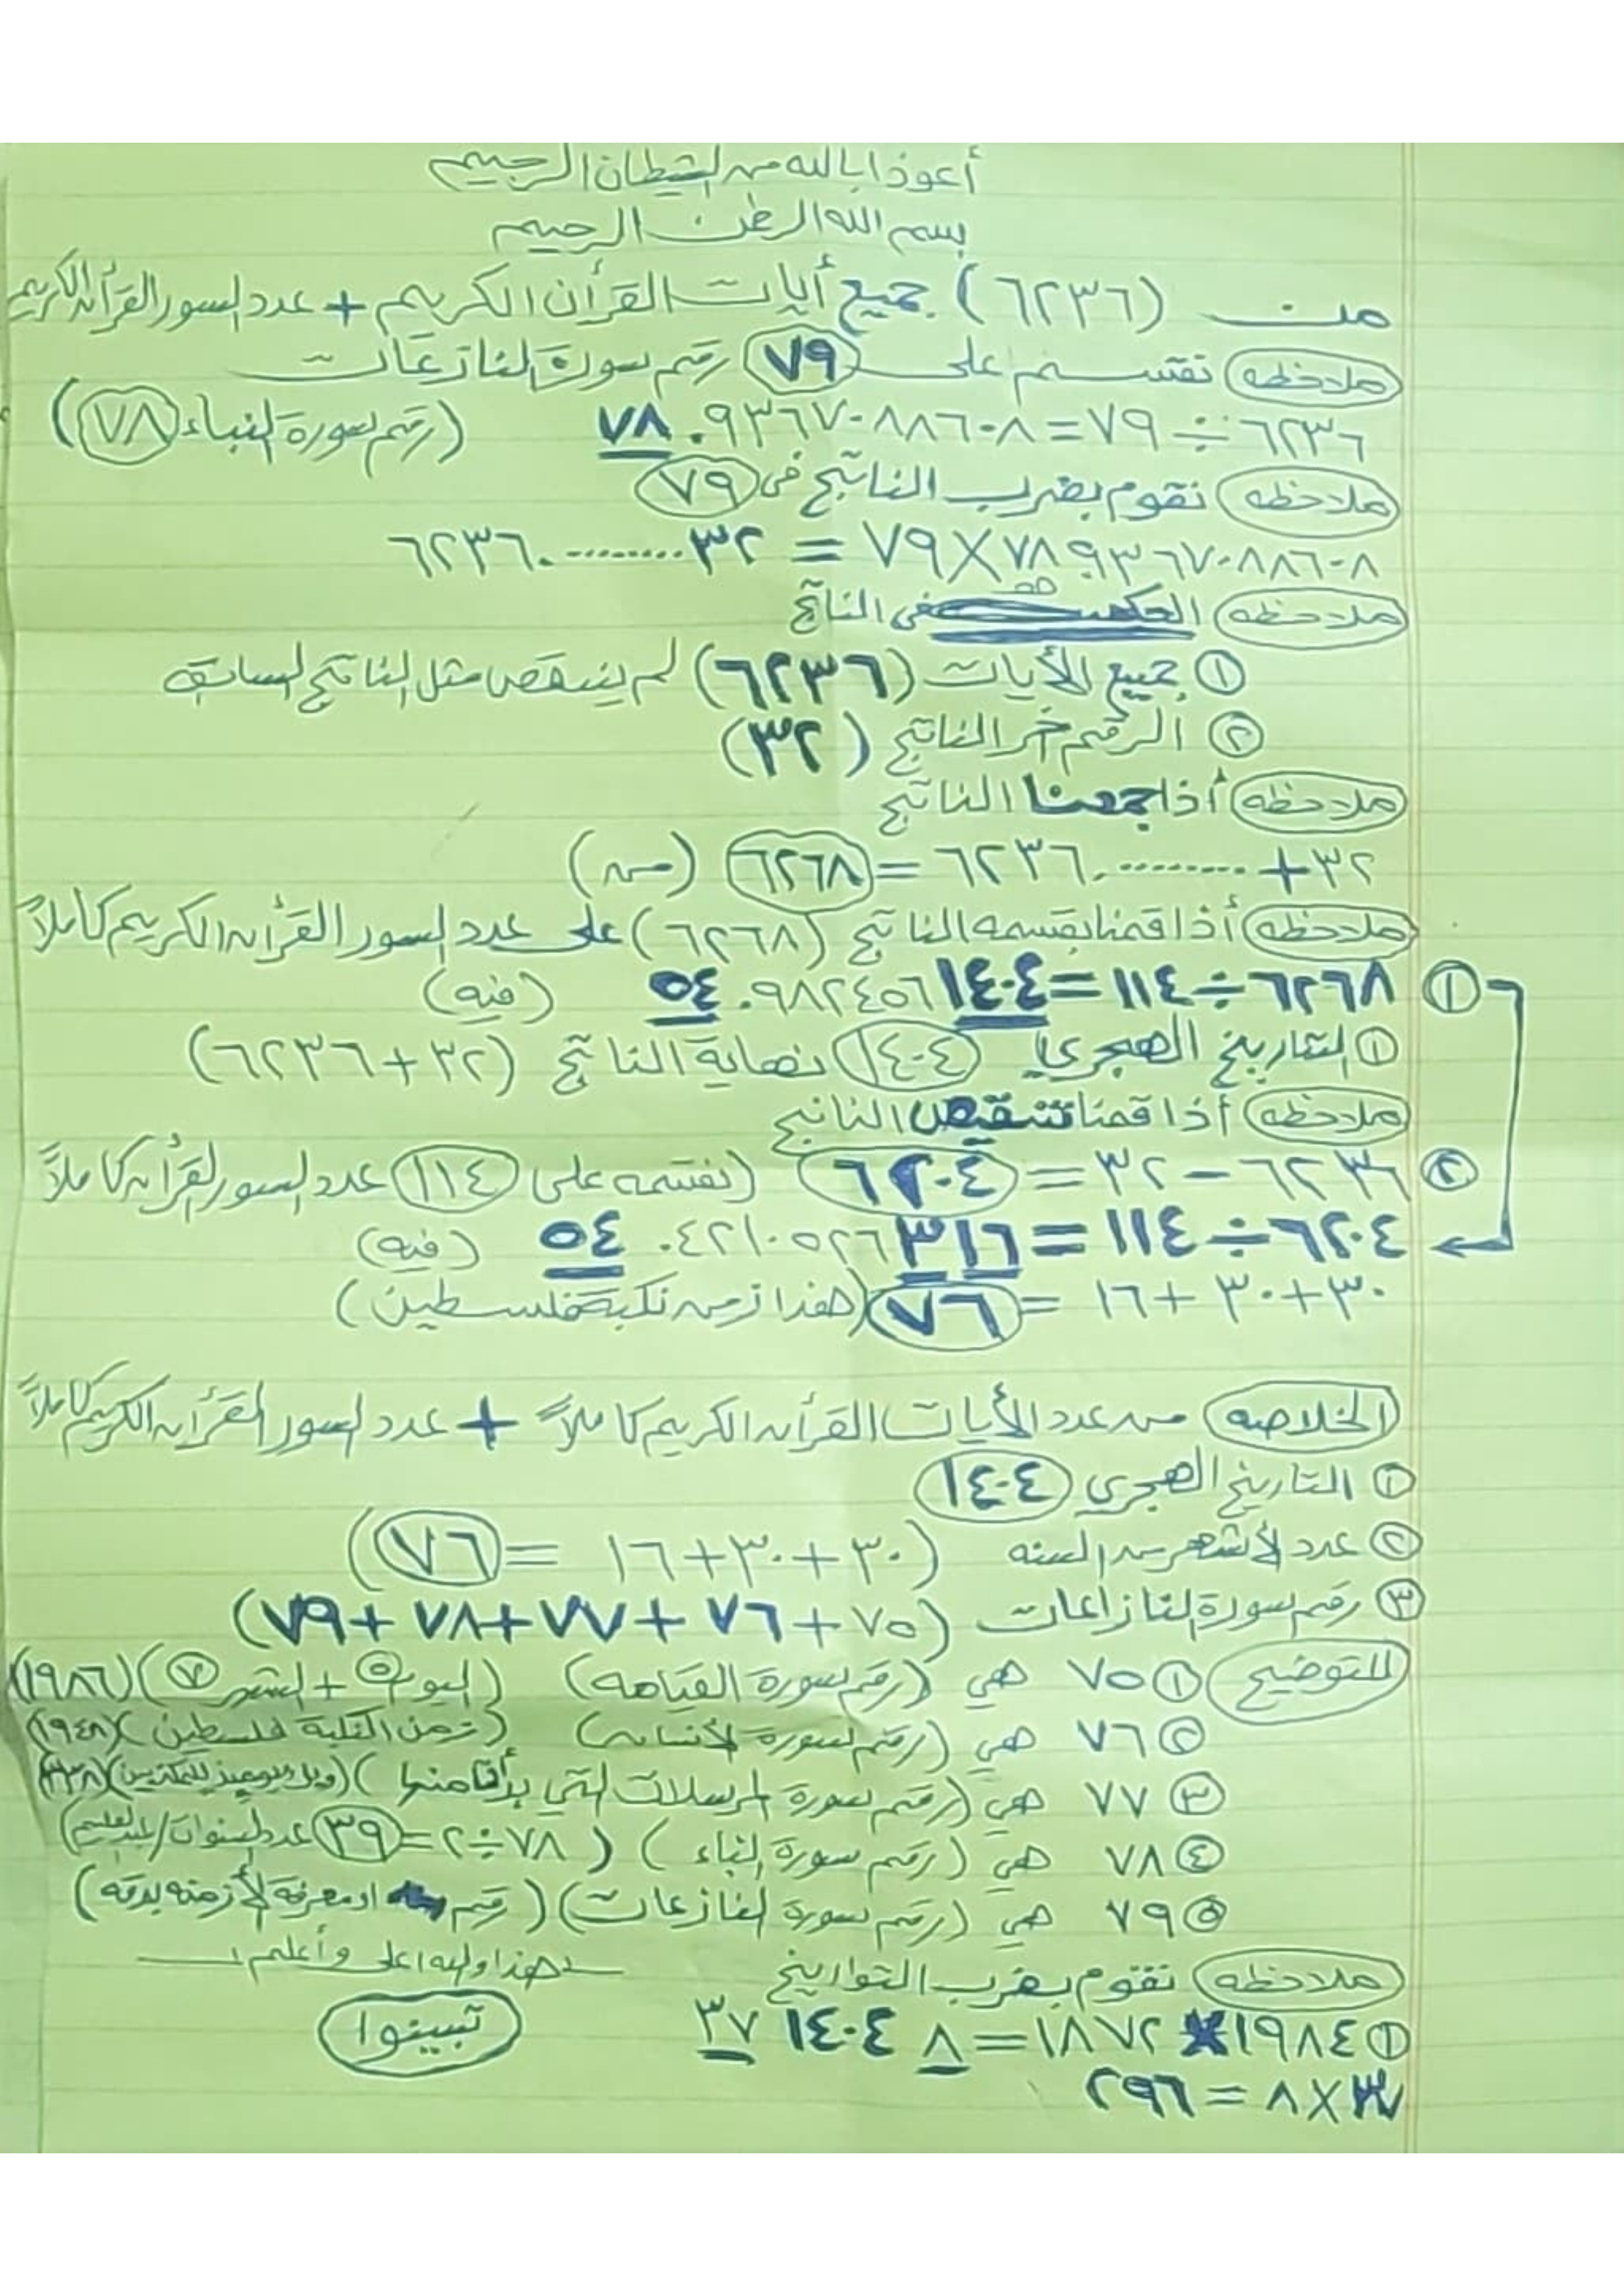 أعوذ بالله من الشيطان الرجيم
بسم الله الرحمن الرحيم
من (٦٢٣٦) جميع أيات القرأن الكريم + عدد السور القرأن الكريم
ملاحظه نقسم على ٧٩ رقم سورة النازعات
٦٢٣٦ ÷ ٧٩ = ٧٨.٩٣٦٧٠٨٨٦٠٨ (رقم سورة النباء ٧٨)
ملاحظه نقوم بضرب الناتج في ٧٩
٧٨٩٣٦٧٠٨٨٦٠٨ X ٧٩ = ٦٢٣٦٠.........٣٢
ملاحظه في الناتج
① جميع الأيات (٦٢٣٦) لم ينقص مثل الناتج السابق
② الرقم أخر الناتج (٣٢)
ملاحظه أذا جمعنا الناتج
٣٢ + .........٦٢٣٦٠ = ٦٢٦٨ (من)
ملاحظه أذا قمنا بقسمه الناتج (٦٢٦٨) على عدد السور القرأن الكريم كاملاً
① ٦٢٦٨ ÷ ١١٤ = ٥٤.٩٨٢٤٥٦١٤٠٤ (فيه)
① التاريخ الهجري ١٤٠٤ نهاية الناتج (٣٢ + ٦٢٣٦)
ملاحظه أذا قمنا تنقيص الناتج
② ٦٢٣٦ - ٣٢ = ٦٢٠٤ (نقسمه على ١١٤ عدد السور القرأن كاملاً
٦٢٠٤ ÷ ١١٤ = ٥٤.٤٢١٠٥٢٦٣١٦ (فيه)
٣٠ + ٣٠ + ١٦ = ٧٦ (هذا زمن نكبة فلسطين)
الخلاصه من عدد الأيات القرأن الكريم كاملاً + عدد السور القرأن الكريم كاملاً
① التاريخ الهجري ١٤٠٤
② عدد الأشهر من السنه (٣٠ + ٣٠ + ١٦ = ٧٦)
③ رقم سورة النازاعات (٧٥ + ٧٦ + ٧٧ + ٧٨ + ٧٩)
للتوضيح ① ٧٥ هي (رقم سورة القيامه) (اليوم ٥ + الشهر ٧) (١٩٨٦)
② ٧٦ هي (رقم سورة الأنسان) (زمن النكبة فلسطين) (١٩٤٨)
③ ٧٧ هي (رقم سورة المرسلات التي بدأنا منها) (ويل يومئذ للمكذبين)
④ ٧٨ هي (رقم سورة النباء) (٧٨ ÷ ٢ = ٣٩ عدد السنوات/
⑤ ٧٩ هي (رقم سورة النازعات) (رقم او معرفة الأزمنه بدقه)
هذا والله اعلى وأعلم
ملاحظه نقوم بضرب التواريخ
① ١٩٨٤ * ١٨٧٢ = ٣٧١٤٠٤٨
تبينوا
٣٧ X ٨ = ٢٩٦